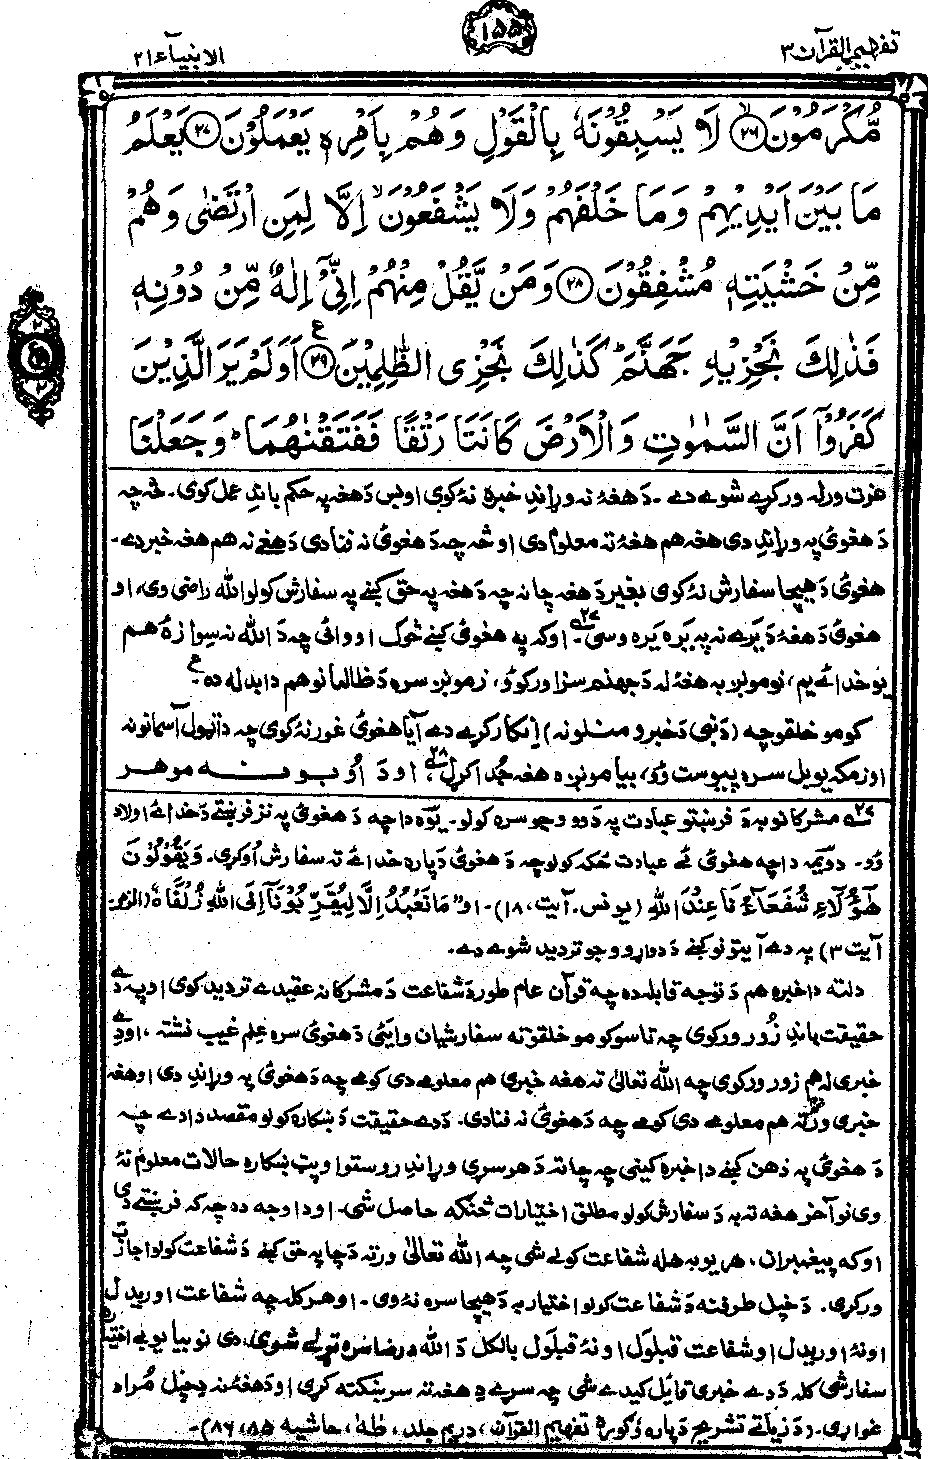 تفهیم القرآن ۳
۱۵۵
الانبیآء ۲۱
مُّكْرَمُوْنَ ﴿۲۶﴾ لَا يَسْبِقُوْنَهٗ بِالْقَوْلِ وَهُمْ بِاَمْرِهٖ يَعْمَلُوْنَ ﴿۲۷﴾ يَعْلَمُ
مَا بَيْنَ اَيْدِيْهِمْ وَمَا خَلْفَهُمْ وَلَا يَشْفَعُوْنَ ۙ اِلَّا لِمَنِ ارْتَضٰى وَهُمْ
مِّنْ خَشْيَتِهٖ مُشْفِقُوْنَ ﴿۲۸﴾ وَمَنْ يَّقُلْ مِنْهُمْ اِنِّيْٓ اِلٰهٌ مِّنْ دُوْنِهٖ
فَذٰلِكَ نَجْزِيْهِ جَهَنَّمَ ؕ كَذٰلِكَ نَجْزِى الظّٰلِمِيْنَ ﴿۲۹﴾ ع اَوَلَمْ يَرَ الَّذِيْنَ
كَفَرُوْٓا اَنَّ السَّمٰوٰتِ وَالْاَرْضَ كَانَتَا رَتْقًا فَفَتَقْنٰهُمَا ؕ وَجَعَلْنَا
عزت ورله ورکړے شوے دے۔ دَهغهٔ نه وړاندِ خبرہ نهٔ کوی او بس دَهغه په حکم باندِ عمل کوی۔ څه چه
دَهغوئ په وړاندِ دی هغه هم هغهٔ ته معلوم دی او څه چه دَهغوئ نه شا دی دَهغے نه هم هغه خبر دے۔
هغوئ دَهیچا سفارش نهٔ کوی بغیر دَهغه چا نه چه دَهغه په حق کښے په سفارش کولو الله راضی وی، او
هغوئ دَهغهٔ دَیَرے نه په یَره یَره وسی۔ ۲۷ اوکه په هغوئ کښے څوک اووائی چه دَ الله نه سِوا زهٔ هم
یو خدائے یم، نو مونږ به هغهٔ له دَجهنم سزا ورکوُو، زمونږ سره دَظالمانو هم دا بدله ده۔ ع
کومو خلقو چه (دَنبی دَخبرو منلونه) اِنکار کړے دے آیا هغوئ غور نهٔ کوی چه دا ټول آسمانونه
او زمکه یو بل سره پیوست وُو، بیا مونږه هغه جُدا کړل ۲۸، او دَ اُوبو نه مو هر
۲۷ مشرکانو به دَ فرښتو عبادت په دَوو وجو سره کولو۔ یوه دا چه دَ هغوئ په نز فرښتے دَخدائے اولاد
وُو۔ دویمه دا چه هغوئ ئے عبادت ځکه کولو چه دَ هغوئ دَپاره خدائے ته سفارش اوکړی۔ وَيَقُوْلُوْنَ
هٰٓؤُلَآءِ شُفَعَآؤُنَا عِنْدَ اللهِ (یونس۔ آیت، ۱۸)۔ او "مَا نَعْبُدُ اِلَّا لِيُقَرِّبُوْنَآ اِلَى اللهِ زُلْفٰى" (الزمر۔
آیت ۳) په دے آیتونو کښے دَ دواړو وجو تردید شوے دے۔
دلته دا خبره هم دَ توجه قابله ده چه قرآن عام طور دَشفاعت دَ مشرکانه عقیدے تردید کوی او په دے
حقیقت باندِ زور ورکوی چه تاسو کومو خلقو ته سفارشیان وایئ دَهغوئ سره علمِ غیب نشته، او دِے
خبرے له هم زور ورکوی چه الله تعالیٰ ته هغه خبرے هم معلومے دی کومے چه دَهغوئ په وړاندِ دی او هغه
خبرے ورته هم معلومے دی کومے چه دَهغوئ نه شا دی۔ دَدے حقیقت دَ ښکاره کولو مقصد دا دے چه
دَ هغوئ په ذهن کښے دا خبره کینی چه چاته دَ هر سړی وړاندِ روستو او پټ ښکاره حالات معلوم نهٔ
وی نو آخر هغه ته به دَ سفارش کولو مطلق اختیارات څنګه حاصل شی۔ او دا وجه ده چه که فرښتے دی
اوکه پیغمبران، هر یو به هله شفاعت کولے شی چه الله تعالیٰ ورته دَ چا په حق کښے دَ شفاعت کولو اجازت
ورکړی۔ دَخپل طرف نه دَ شفاعت کولو اختیار به دَهیچا سره نهٔ وی۔ او هر کله چه شفاعت اوریدل
او نهٔ اوریدل او شفاعت قبلول او نهٔ قبلول بالکل دَ الله دَ رضا سره تړلے شوی دی نو بیا یو بے اختیاره
سفارشی کله دَ دے خبرے قابل کیدے شی چه سړے دِ هغه ته سر ښکته کړی او دَهغهٔ نه دِ خپل مُراد
غواړی۔ (دَ زیاتے تشریح دَپاره وُګورئ تفهیم القرآن، دریم جلد، طٰهٰ، حاشیه ۸۵، ۸۶)۔